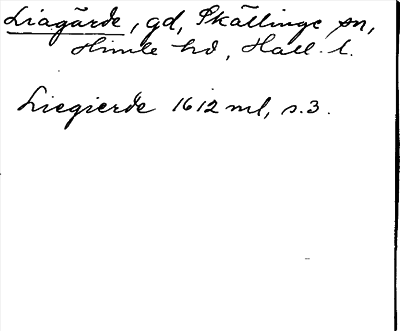 Liagärde, gd, Skällinge sn,
Himle hd, Hall. l.
Liegierde 1612 ml, s. 3.